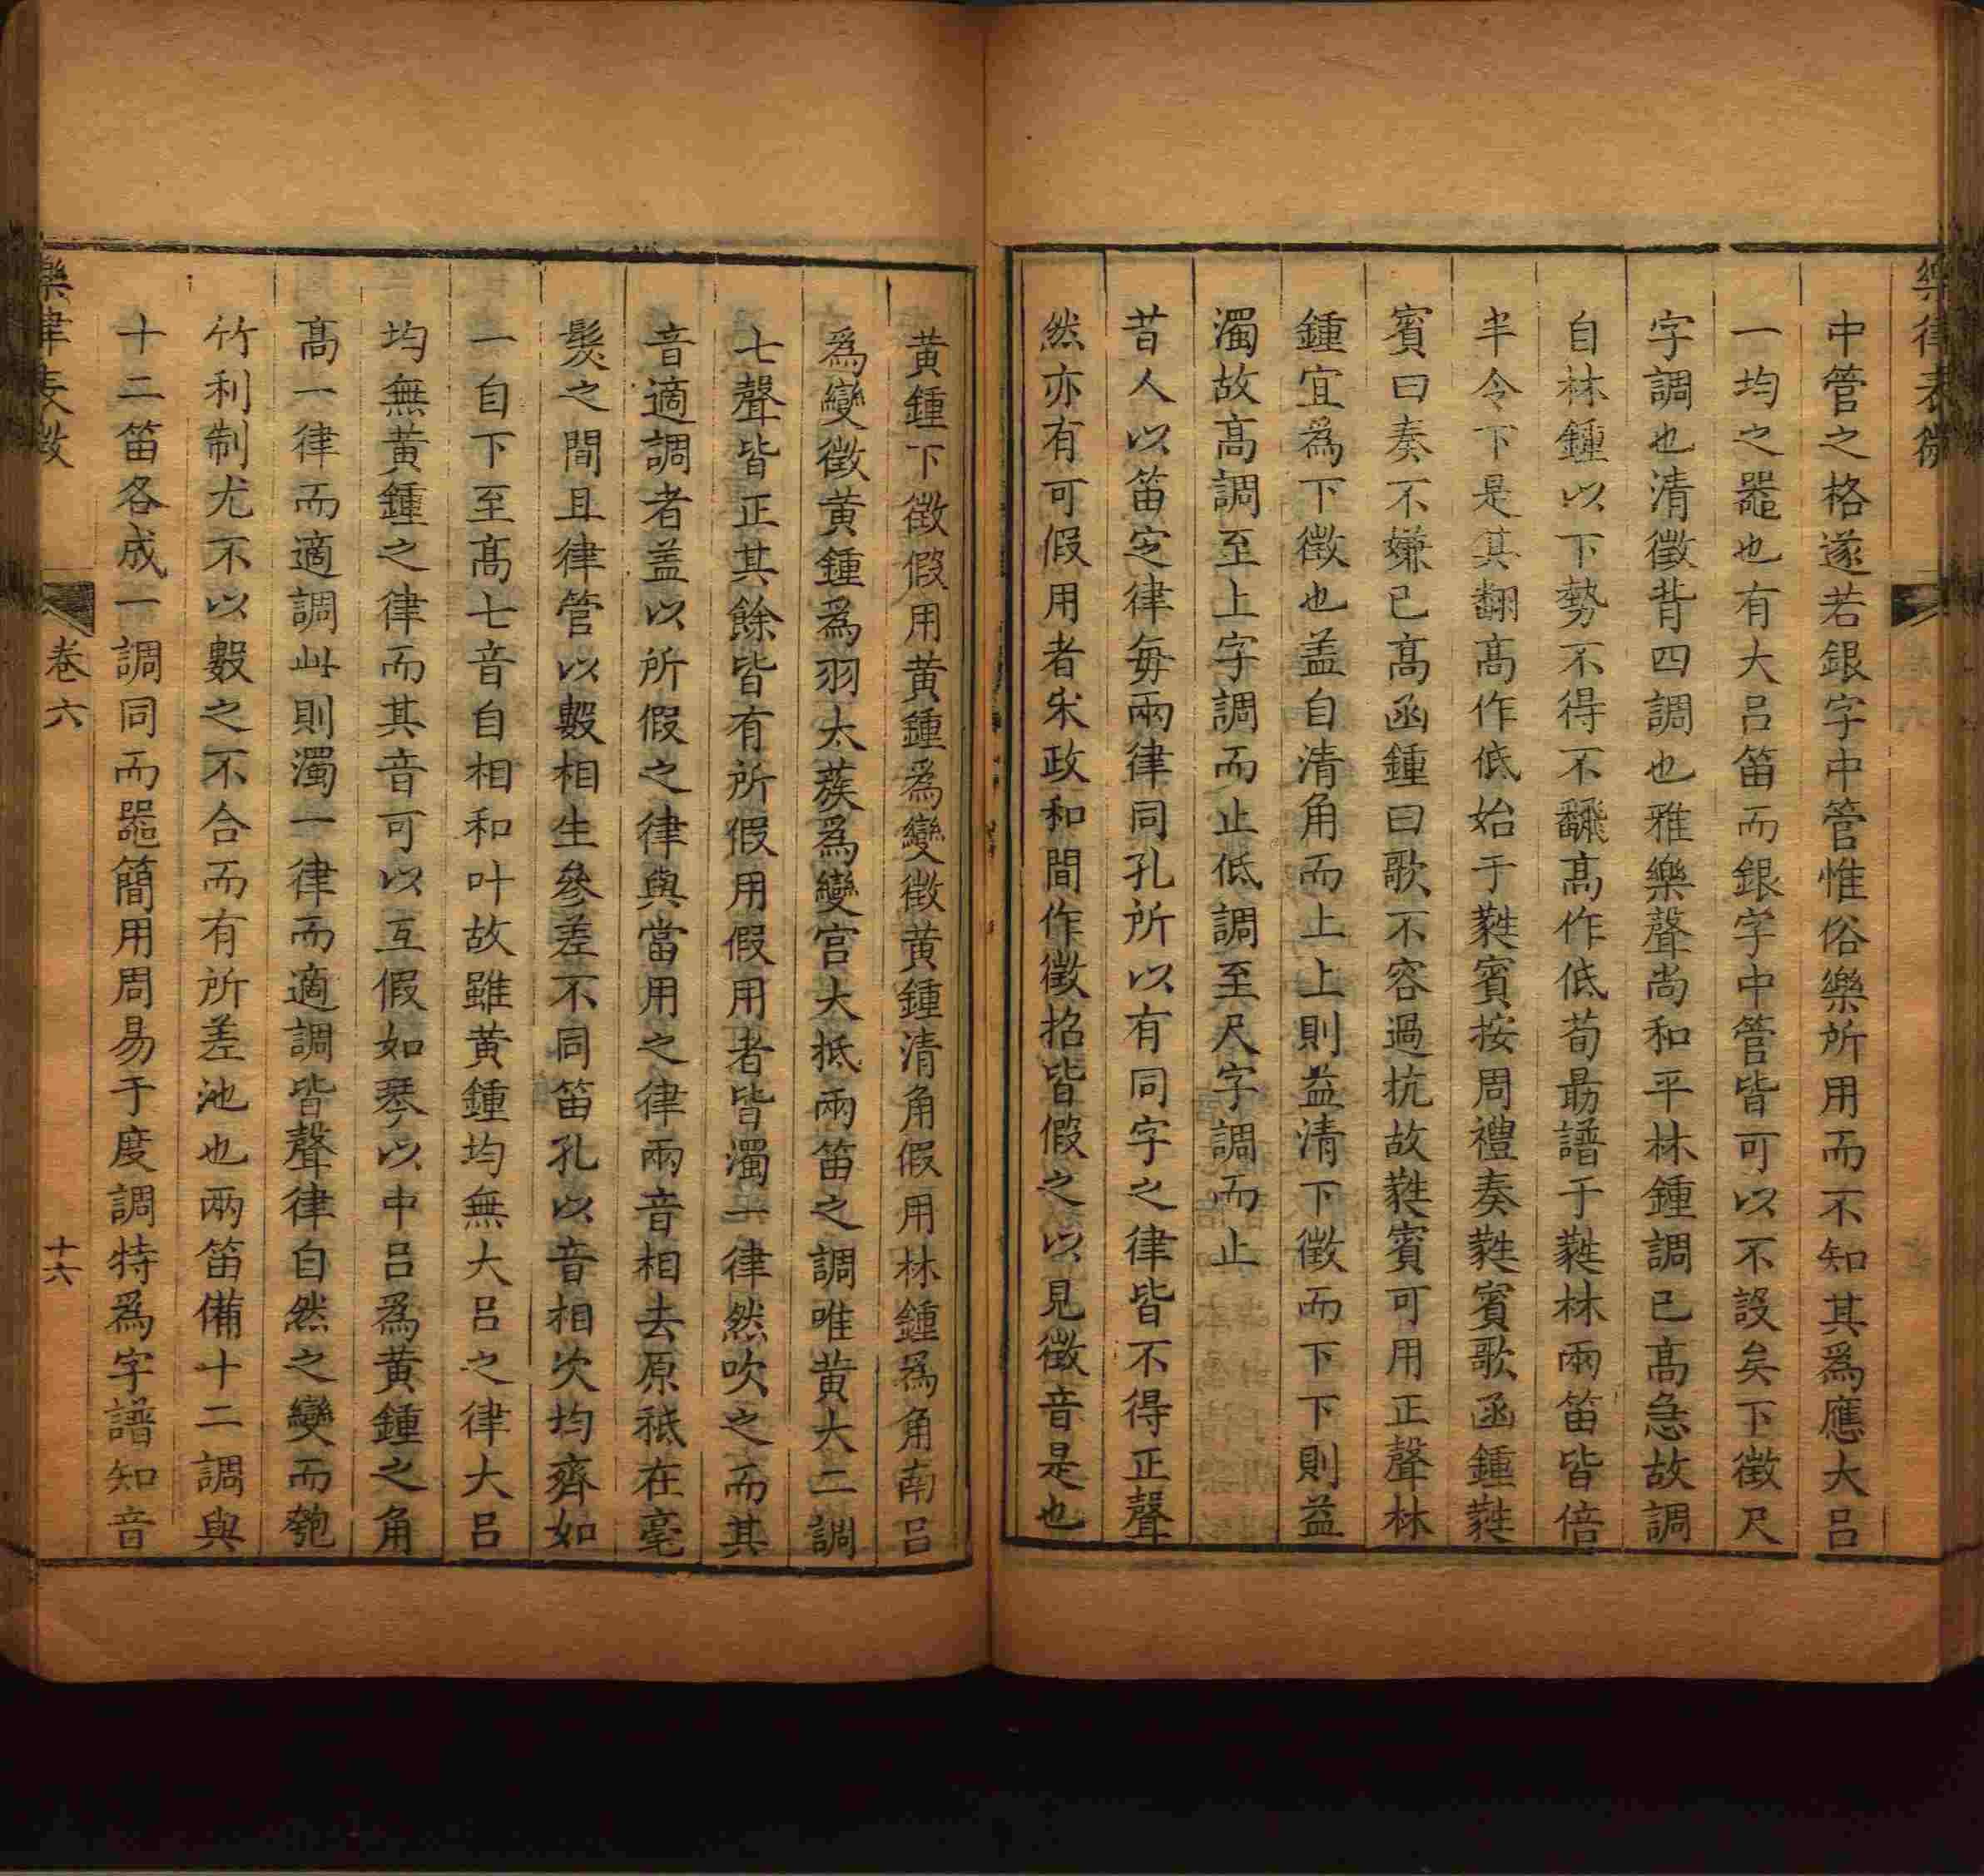 樂律表微
中管之格遂若銀字中管惟俗樂所用而不知其爲應大呂
一均之器也有大呂笛而銀字中管皆可以不設矣下徵尺
字調也清徵背四調也雅樂聲尚和平林鍾調已高急故調
自林鍾以下勢不得不飜高作低荀勗譜于蕤林兩笛皆倍
半令下是其翻高作低始于蕤賓按周禮奏蕤賓歌函鍾蕤
賓曰奏不嫌已高函鍾曰歌不容過抗故蕤賓可用正聲林
鍾宜爲下徵也盖自清角而上上則益清下徵而下下則益
濁故高調至上字調而止低調至尺字調而止
昔人以笛定律每兩律同孔所以有同字之律皆不得正聲
然亦有可假用者朱政和間作徵招皆假之以見徵音是也
黄鍾下徵假用黄鍾爲變徵黄鍾清角假用林鍾爲角南呂
爲變徵黄鍾爲羽太蔟爲變宫大抵兩笛之調唯黄大二調
七聲皆正其餘皆有所假用假用者皆濁一律然吹之而其
音適調者盖以所假之律與當用之律兩音相去原祗在毫
髮之間且律管以數相生參差不同笛孔以音相次均齊如
一自下至高七音自相和叶故雖黄鍾均無大呂之律大呂
均無黄鍾之律而其音可以互假如琴以中呂爲黄鍾之角
高一律而適調此則濁一律而適調皆聲律自然之變而匏
竹利制尤不以數之不合而有所差池也兩笛備十二調與
十二笛各成一調同而器簡用周易于度調特爲字譜知音
樂律表微
卷六
十六